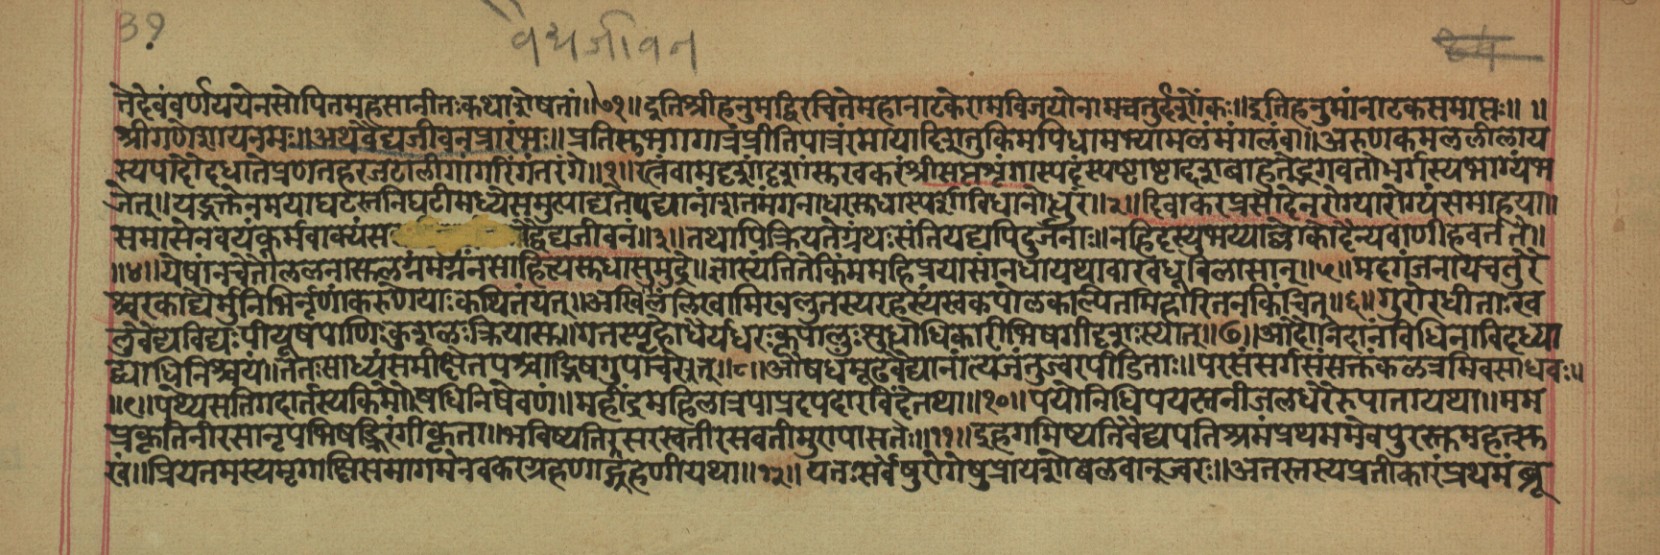 ३१ वैद्यजीवन
तेदेवंवर्णययेनसोपितमहसानीतःकथाशेषतां॥७१॥इतिश्रीहनुमद्विरचितेमहानाटकेरामविजयोनामचतुर्दशोंकः॥इतिहनुमांनाटकसमाप्तः॥ ॥
श्रीगणेशायनमः॥अथवैद्यजीवनप्रारंभः॥प्रतिसुभगगात्रंप्रीतिपात्रंरमायादिशतुकिमपिधामभ्यामलंमंगलंवा॥अरुणकमललीलाय
स्यपादौदधातेप्रणतहरजटालीगांगरिंगंतरंगे॥१॥रत्नंवामदृशांदृशांसुखकरंश्रीसप्तश्रृंगास्पदंस्पष्टाष्टादशबाहुतद्भगवतोभर्गस्यभाग्यंभ
जेत्॥यद्भक्तेनमयाघटस्तनिघटीमध्येसमुत्पाद्यतेपद्यानांशतमंगनाधरसुधास्पर्धाविधानोधुरं॥२॥दिवाकरप्रसादेनरोग्यारोग्यंसमाहया॥
समासेनवयंकुर्मवाक्यंस द्वैद्यजीवनं॥३॥तथापिक्रियतेग्रंथःसंतियद्यपिदुर्जनाः॥नहिदस्युभयाल्लोकोदैन्यवाणीहवर्तते॥
॥४॥येषांनचेतोललनासुलग्नंमग्नंनसाहित्यसुधासुमुद्रे॥ज्ञास्यंतितेकिंममहिप्रयासानंधायथावारवधूविलासान्॥५॥मदगंजनायचतुरै
श्चरकाद्यैर्मुनिभिर्नृणांकरुणयाःकथितंयत्॥अखिलंलिखामिखलुतस्यरहस्यंस्वकपोलकल्पितमिहास्तिनकिंचित्॥६॥गुरोरधीताःखि
लवैद्यविद्यःपीयूषपाणिःकुशलःक्रियासु॥गतस्पृहोधैर्यधरःकृपालुःसुधोधिकारीभिषगीदृशःस्यात्॥७॥आदौनिदानविधिनाविदध्या
द्व्याधिनिश्चयं॥ततःसाध्यंसमीक्षेतपश्चाद्भिषगुपाचरेत्॥८॥औषधंमूढवैद्यानांत्यजंतुज्वरपीडिताः॥परसंसर्गसंसक्तकलत्रमिवसाधवः॥
॥९॥पथ्येसतिगदार्तस्यकिमौषधिनिषेवणं॥महींद्रमहिलात्रपाप्रदपदारविंदेतथा॥१०॥पयोनिधिपयस्वनीजलधरेरुपातायथा॥मम
प्रकृतिनीरसानृपभिषद्भिरंगीकृता॥भविष्यतिसरस्वतीरसवतीमुरापासतेः॥११॥इहगमिष्यतिवैद्यपतिश्रमंप्रथममेवपुरस्तुमहत्सु
खं॥प्रियतमस्यमृगाक्षिसमागमेनवकरग्रहणाद्गृहणीयथा॥१२॥यतःसर्वेषुरोगेषुप्रायशोबलवान्ज्वरः॥अतस्तस्यप्रतीकारंप्रथमंब्रू